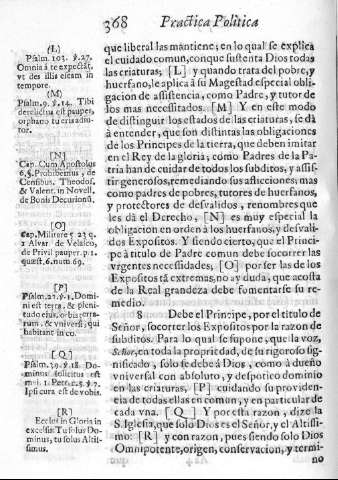 368 Practica Politica
(L)
Psalm. 103. ℣. 27.
Omnia à te expectāt,
vt des illis escam in
tempore.
(M)
Psalm. 9. ℣. 14. Tibi
derelictus est pauper,
orphano tu eris adiu-
tor.
[N]
Cap. Cum Apostolus
6. §. Prohibemus, de
Censibus. Theodos.
& Valent. in Novell.
de Bonis Decurionū.
[O]
Cap. Militare 23. q.
1. Alvar. de Velasco,
de Privil. pauper. p. 1.
quæst. 6. num. 69.
[P]
Psalm. 23. ℣. 1. Domi-
ni est terra, & pleni-
tudo eius, orbis terra-
rum, & vniversi, qui
habitant in eo.
[Q]
Psalm. 39. ℣. 18. Do-
minus solicitus est
mei. 1. Petr. c. 5. ℣. 7.
Ipsi cura est de vobis.
[R]
Eccles. in Gloria in
excelsis: Tu solus Do-
minus, tu solus Altis-
simus.
que liberal las mantiene; en lo qual se explica
el cuidado comun, con que sustenta Dios todas
las criaturas; [L] y quando trata del pobre, y
huerfano, le aplica à su Magestad especial obli-
gacion de assistencia, como Padre, y tutor de
los mas necessitados. [M] Y en este modo
de distinguir los estados de las criaturas, se dà
à entender, que son distintas las obligaciones
de los Principes de la tierra, que deben imitar
en el Rey de la gloria; como Padres de la Pa-
tria han de cuidar de todos los subditos, y assis-
tir generosos, remediando sus aflicciones, mas
como padres de pobres, tutores de huerfanos,
y protectores de desvalidos, renombres que
les dà el Derecho, [N] es muy especial la
obligacion en orden à los huerfanos, y desvali-
dos Expositos. Y siendo cierto, que el Princi-
pe à titulo de Padre comun debe socorrer las
vrgentes necessidades, [O] por ser las de los
Expositos tã extremas, no ay duda, que acosta
de la Real grandeza debe fomentarse su re-
medio.
8 Debe el Principe, por el titulo de
Señor, socorrer los Expositos por la razon de
subditos. Para lo qual se supone, que la voz,
Señor, en toda la propriedad, de su rigoroso sig-
nificado, solo se debe à Dios, como à dueño
vniversal con absoluto, y despotico dominio
en las criaturas, [P] cuidando su providen-
cia de todas ellas en comun, y en particular de
cada vna. [Q] Y por esta razon, dize la
S. Iglesia, que solo Dios es el Señor, y el Altissi-
mo: [R] y con razon, pues siendo solo Dios
Omnipotente, origen, conservacion, y termi-
no